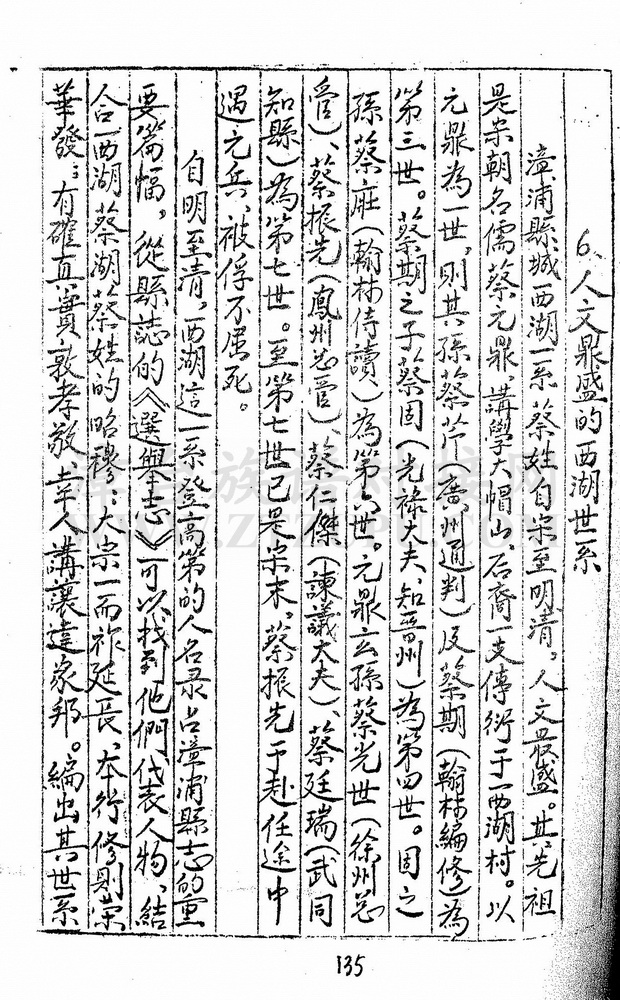 6、人文鼎盛的西湖世系
漳浦縣城西湖一系蔡姓自宋至明清，人文最盛。其先祖
是宋朝名儒蔡元鼎，講學大帽山，后裔一支傳衍于西湖村。以
元鼎為一世，則其孫蔡芹（廣州通判）及蔡期（翰林編修）為
第三世。蔡期之子蔡固（光祿大夫、知晉州）為第四世。固之
孫蔡㽵（翰林侍讀）為第六世。元鼎玄孫蔡光世（徐州总
管）、蔡振先（鳳州总管）、蔡仁傑（諫議大夫）、蔡廷瑞（武同
知縣）為第七世。至第七世已是宋末。蔡振先于赴任途中
遇元兵，被俘不屈死。
自明至清，西湖這一系登高第的人名录占漳浦縣志的重
要篇幅，從縣誌的《選舉志》可以找到他們代表人物，結
合西湖蔡湖蔡姓的昭穆：大宗一而祚延長，本行修則荣
華發；有確真實敦孝敬，幸人講讓達家邦。編出其世系
135